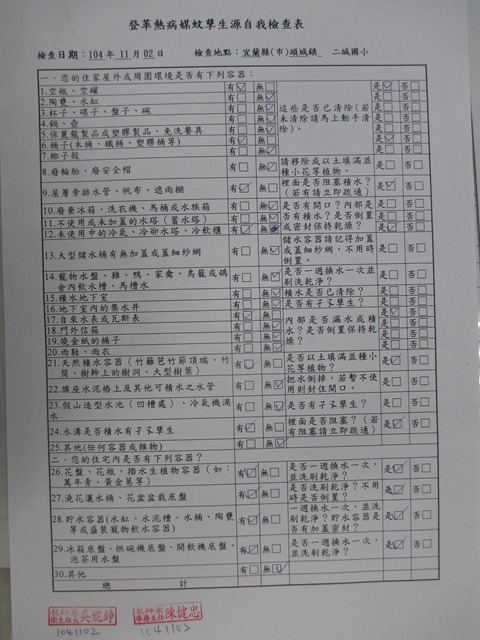 登革熱病媒蚊孳生源自我檢查表
檢查日期：104 年 11 月 02 日　檢查地點：宜蘭縣(市)頭城鎮 二城國小
一．您的住家屋外或周圍環境是否有下列容器：
1.空瓶、空罐 有□ 無□ 是□ 否□
2.陶甕、水缸 有□ 無□ 是□ 否□
3.杯子、碟子、盤子、碗 有□ 無□ 這些是否已清除(若未清除請馬上動手清除)。 是□ 否□
4.鍋、壺 有□ 無□ 是□ 否□
5.保麗龍製品或塑膠製品、免洗餐具 有□ 無□ 是□ 否□
6.桶子(木桶、鐵桶、塑膠桶等) 有□ 無□ 是□ 否□
7.椰子殼 有□ 無□ 是□ 否□
8.廢輪胎、廢安全帽 有□ 無□ 請移除或以土填滿並種小花等植物。 是□ 否□
9.屋簷旁排水管、帆布、遮雨棚 有□ 無□ 裡面是否阻塞積水？(若有請立即疏通) 是□ 否□
10.廢棄冰箱、洗衣機、馬桶或水族箱 有□ 無□ 是否有開口？內部是否有積水？是否倒置或密封保持乾燥？ 是□ 否□
11.不使用或未加蓋的水塔（蓄水塔） 有□ 無□ 是□ 否□
12.未使用中的冷氣、冷卻水塔、冷飲櫃 有□ 無□ 是□ 否□
13.大型儲水桶有無加蓋或蓋細紗網 有□ 無□ 儲水容器請記得加蓋或蓋細紗網，不用時倒置。 是□ 否□
14.寵物水盤、雞、鴨、家禽、鳥籠或鴿舍內飲水槽、馬槽水 有□ 無□ 是否一週換水一次並刷洗乾淨？ 是□ 否□
15.積水地下室 有□ 無□ 積水是否已清除？ 是□ 否□
16.地下室內的集水井 有□ 無□ 是否有孑孓孳生？ 是□ 否□
17.自來水表或瓦斯表 有□ 無□ 內部是否漏水或積水？是否倒置保持乾燥？ 是□ 否□
18.門外信箱 有□ 無□ 是□ 否□
19.燒金紙的桶子 有□ 無□ 是□ 否□
20.雨鞋、雨衣 有□ 無□ 是□ 否□
21.天然積水容器（竹籬笆竹節頂端、竹筒、樹幹上的樹洞、大型樹葉） 有□ 無□ 是否以土填滿並種小花等植物？ 是□ 否□
22.旗座水泥樁上及其他可積水之水管 有□ 無□ 把水倒掉，若暫不使用則封住開口。 是□ 否□
23.假山造型水池（凹槽處）、冷氣機滴水 有□ 無□ 是否有孑孓孳生？ 是□ 否□
24.水溝是否積水有孑孓孳生 有□ 無□ 裡面是否阻塞？（若有阻塞請立即疏通） 是□ 否□
25.其他(任何容器或雜物) 有□ 無□
二．您的住宅內是否有下列容器？
26.花盤、花瓶、插水生植物容器（如：萬年青、黃金葛等） 有□ 無□ 是否一週換水一次，並洗刷乾淨？ 是□ 否□
27.澆花灑水桶、花盆盆栽底盤 有□ 無□ 是否洗刷乾淨？不用時是否倒置？ 是□ 否□
28.貯水容器(水缸、水泥槽、水桶、陶甕等或盛裝寵物飲水容器) 有□ 無□ 一週換水一次，並洗刷乾淨？貯水容器是否有加蓋密封？ 是□ 否□
29.冰箱底盤、烘碗機底盤、開飲機底盤、泡茶用水盤 有□ 無□ 是否一週換水一次，並洗刷乾淨？ 是□ 否□
30.其他 有□ 無□
總　計
教師兼衛生組長 吳妮錚　教師兼學務主任 陳健忠
1041102　1041102